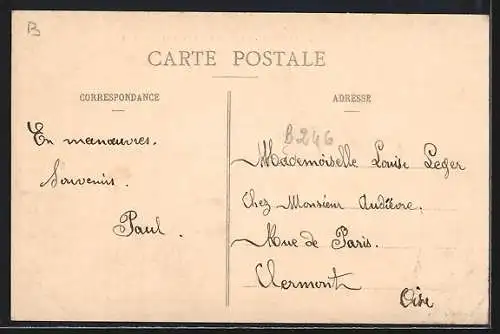 B
CARTE POSTALE
CORRESPONDANCE
En manœuvres.
Souvenirs.
Paul.
ADRESSE
B246
Mademoiselle Louise Leger
Chez Monsieur Audièvre.
Rue de Paris.
Clermont
Oise